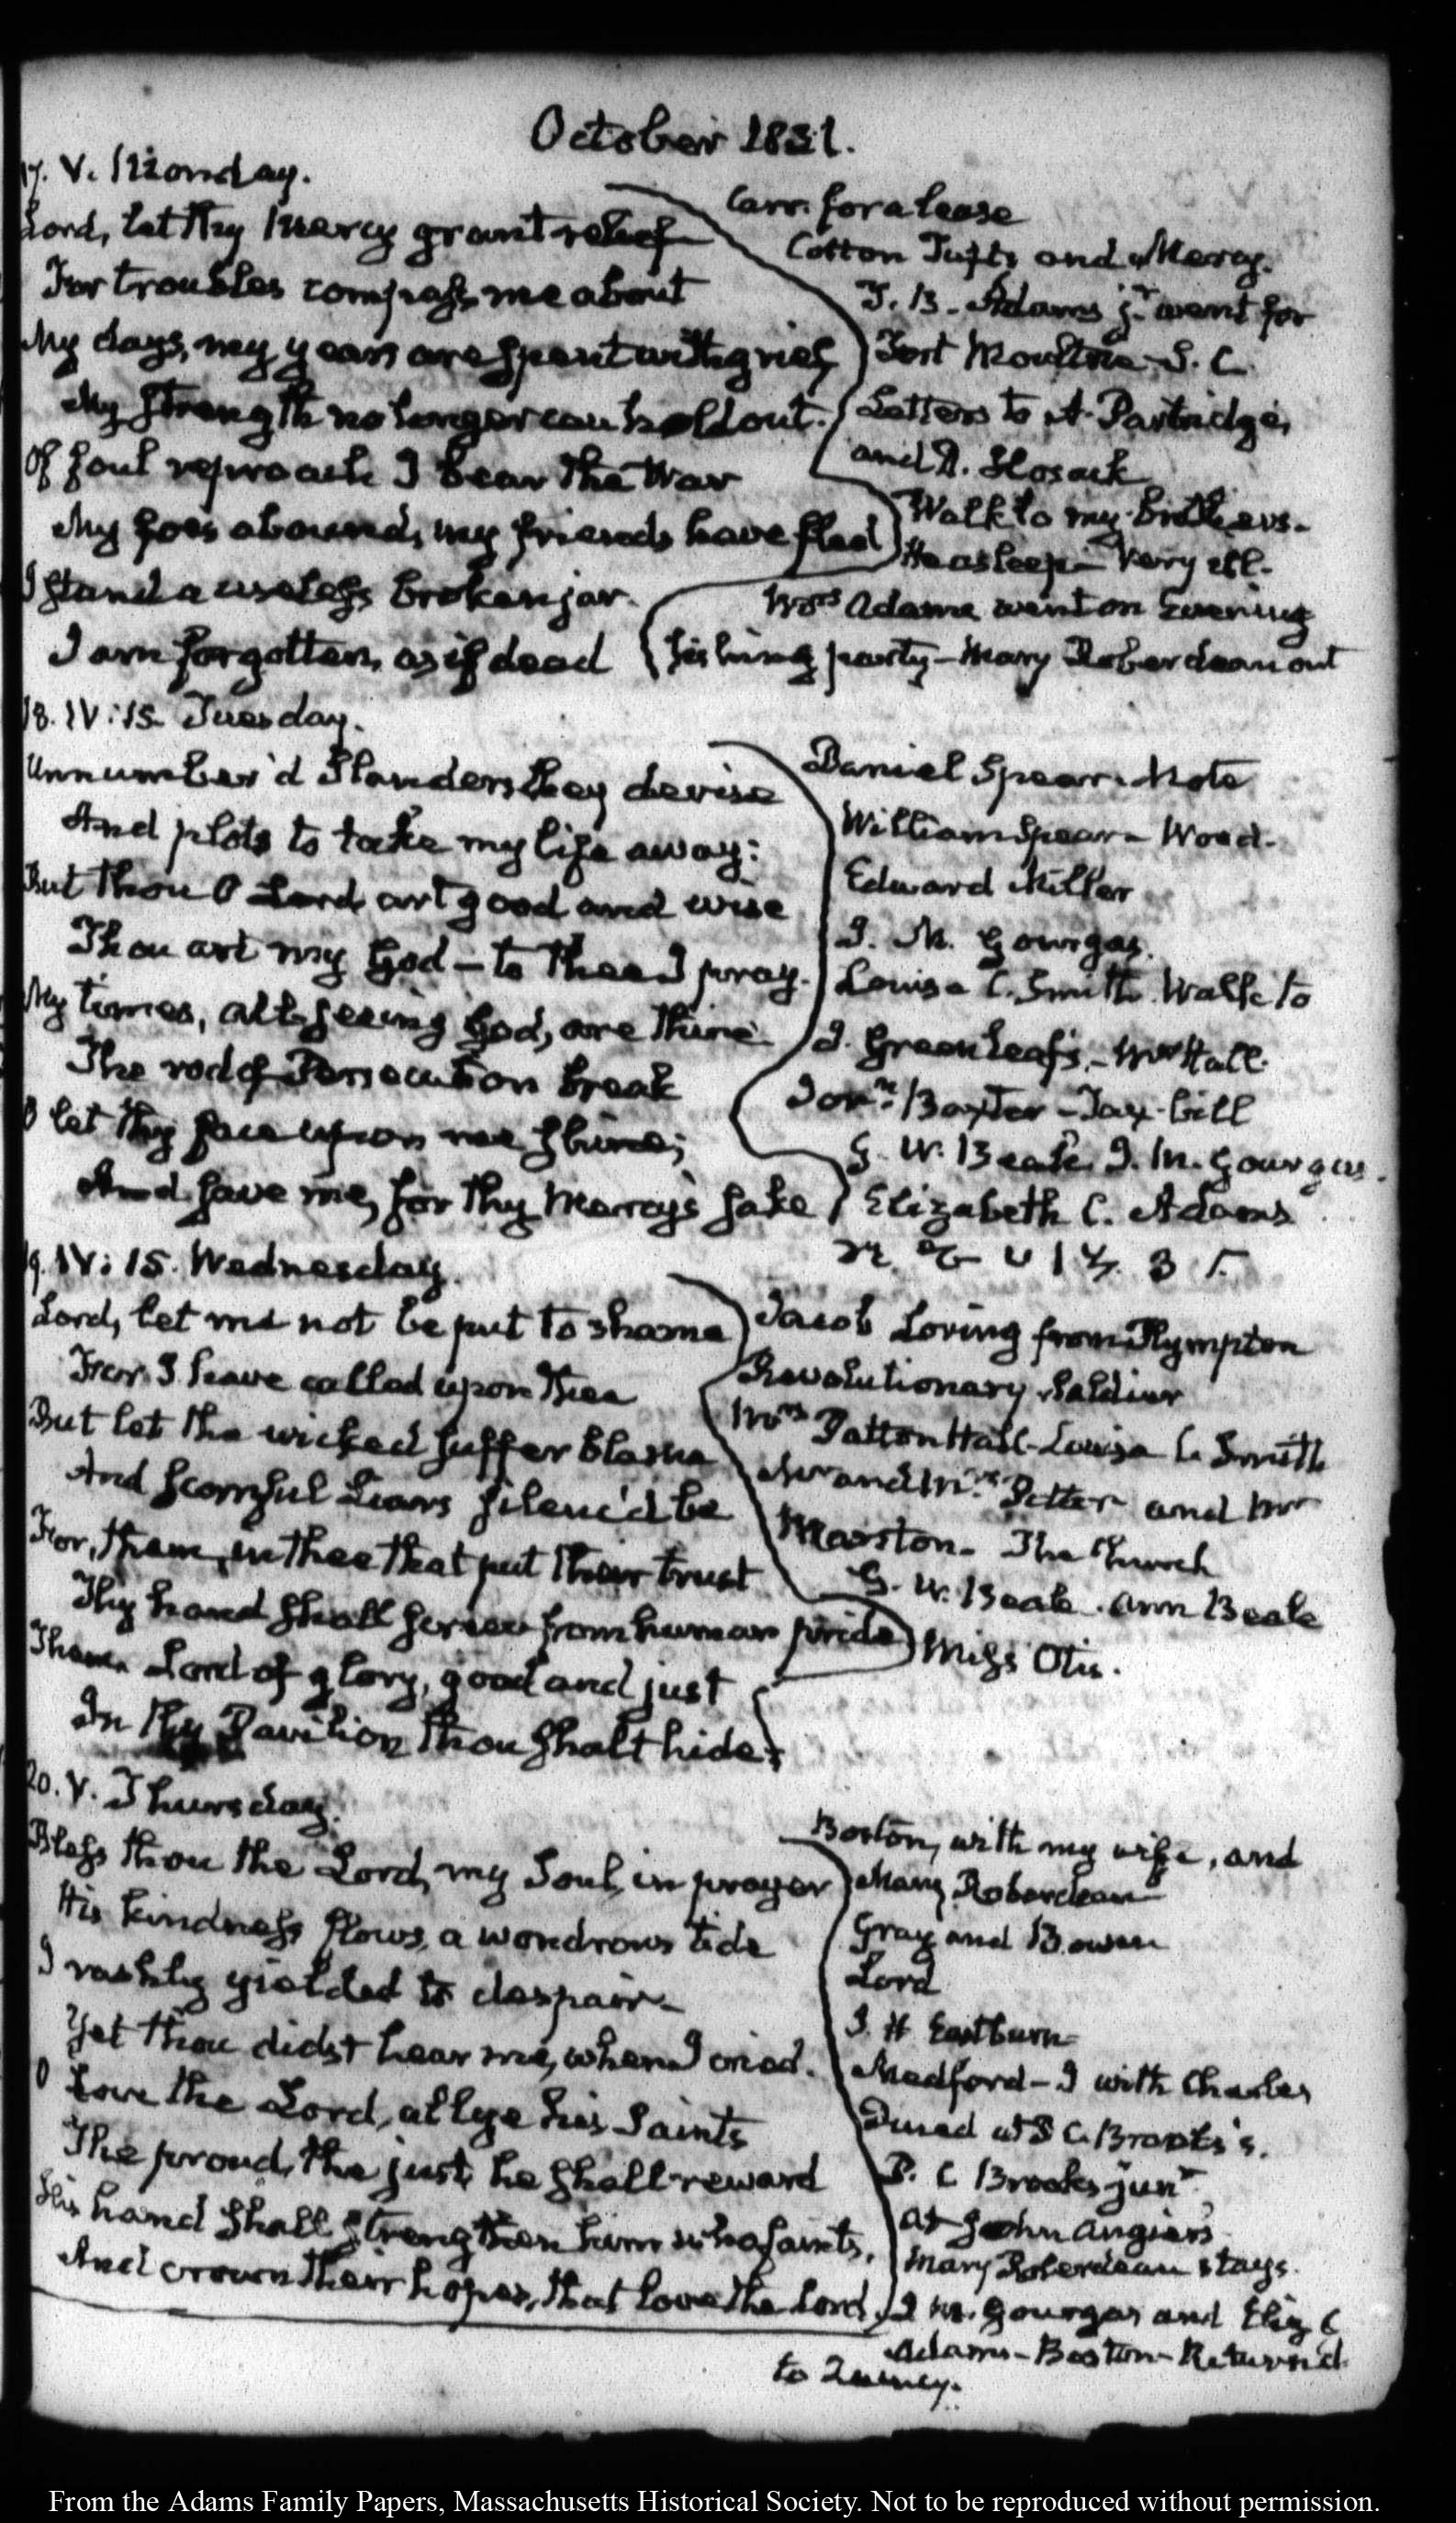 October 1831.
17. V. Monday.
Lord, let thy mercy grant relief
For troubles compass me about
My days, my years are spent with grief
My strength no longer can hold out.
Of foul reproach I bear the War
My foes abound, my friends have fled
I stand a useless broken jar.
I am forgotten, as if dead
Carr. for a lease
Cotton Tufts and Mercy.
T. B. Adams jr. went for
Fort Moultrie S. C.
Letters to A. Partridge,
and D. Hosack
Walk to my brothers.
He asleep— Very ill.
Mrs Adams went on Evening
fishing party— Mary Roberdeau out
18. IV:15. Tuesday.
Unnumber'd Slanders they devise
And plots to take my life away:
But thou O Lord art good and wise
Thou art my God — to thee I pray.
My times, all-seeing God, are thine
The rod of Persecution break
O let thy face upon me shine;
And save me, for thy Mercy's sake
Daniel Spear. Note
William Spear— Wood.
Edward Miller
J. M. Gourgas.
Louisa C. Smith. Walk to
J. Greenleaf's.— Mrs Hall.
Baxter— Tax-bill
G. W. Beale, J. M. Gourgas.
Elizabeth C. Adams
19. IV:15. Wednesday.
Lord, let me not be put to shame
For I have called upon thee
But let the wicked suffer blame
And scornful Liars silenc'd be
For, them, in thee that put their trust
Thy hand shall screen from human pride
Them Lord of glory, good and just
In thy Pavilion thou shalt hide.
Jacob Loring from Plympton
Revolutionary Soldier
Mrs Hall— Louisa C. Smith
Mr and Mrs and Mr
Marston— The Church
G. W. Beale. Ann Beale
Miss Otis.
20. V. Thursday.
Bless thou the Lord, my Soul, in prayer
His kindness flows, a wondrous tide
I rashly yielded to despair—
Yet thou didst hear me, when I cried.
O Love the Lord, all ye his Saints
The proud, the just, he shall reward
His hand shall strengthen him who faints,
And crown their hopes, that love the Lord.
Boston, with my wife, and
Mary Roberdeau
Gray and Bowen
Lord
J. H Eastburn
Medford— I with Charles
Dined at P. C. Brooks's.
P. C Brooks junr
at John Angier's
Mary Roberdeau stays.
J M. Gourgas and Eliz. C
Adams— Boston— Return'd
to Quincy.
From the Adams Family Papers, Massachusetts Historical Society. Not to be reproduced without permission.